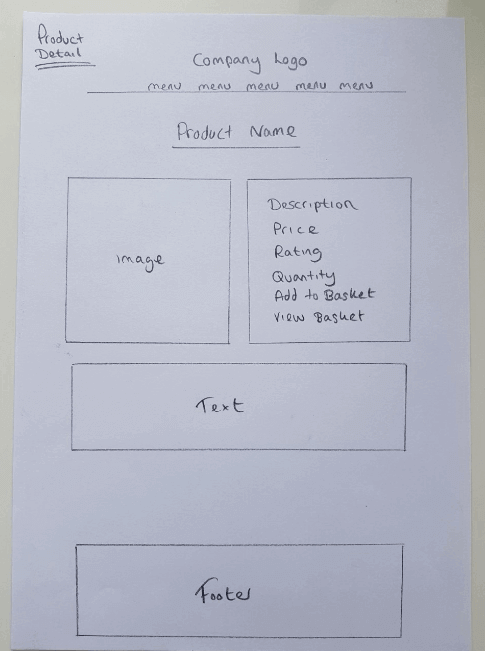 Product
Detail
Company Logo
menu menu menu menu menu
Product Name
image
Description
Price
Rating
Quantity
Add to Basket
View Basket
Text
Footer